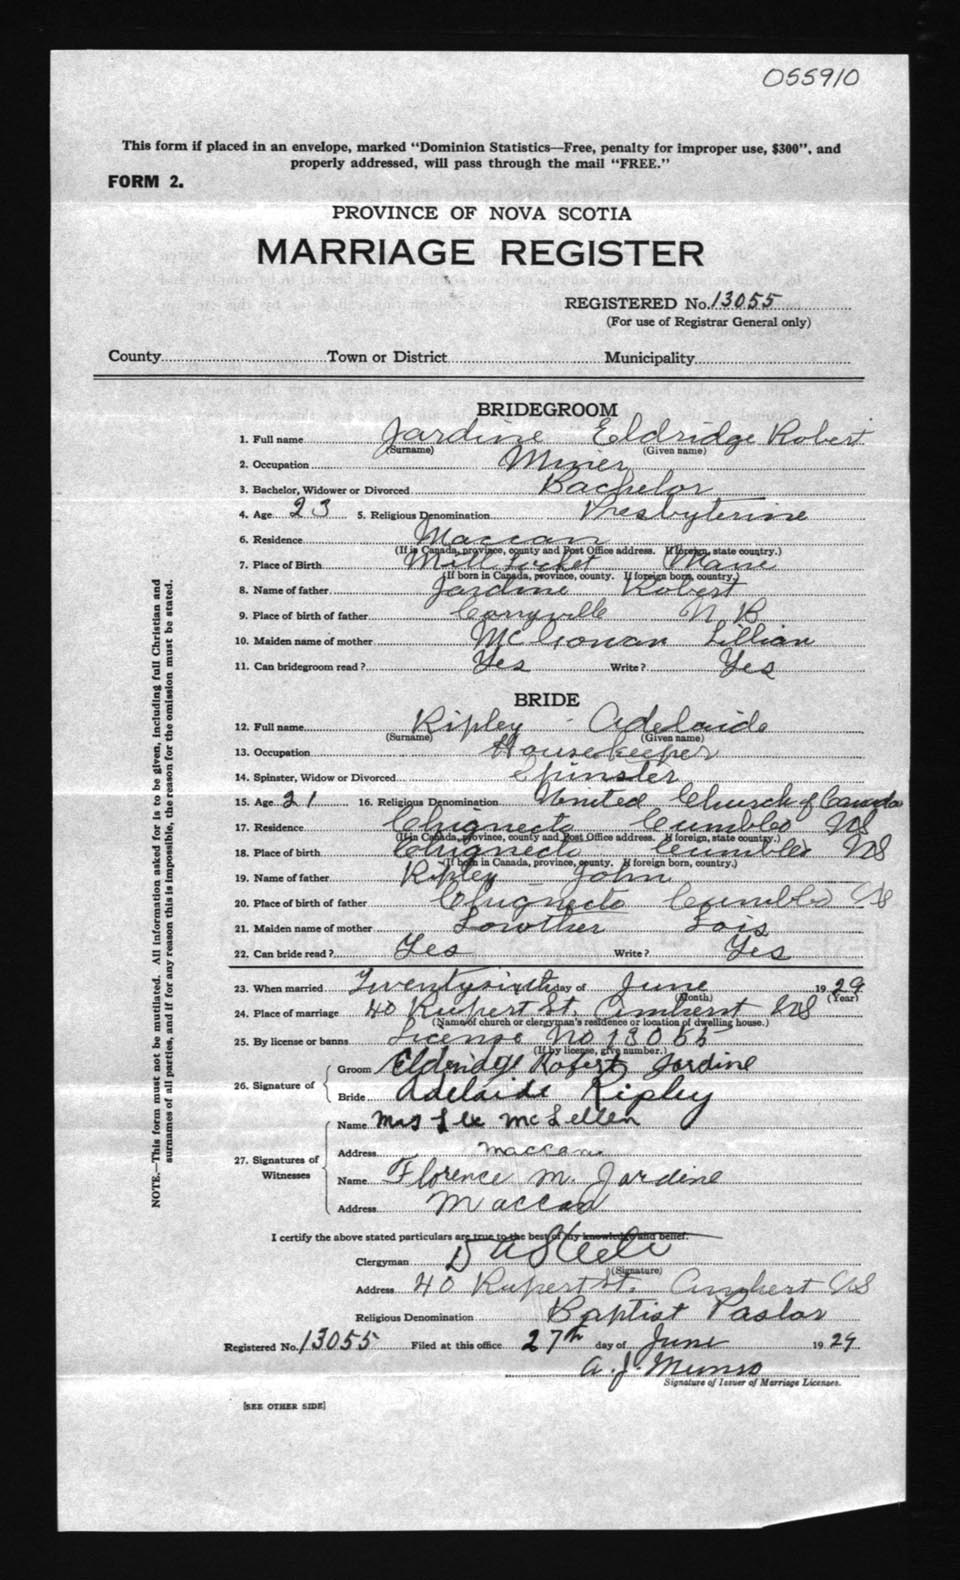 055910
This form if placed in an envelope, marked "Dominion Statistics—Free, penalty for improper use, $300", and
properly addressed, will pass through the mail "FREE."
FORM 2.
PROVINCE OF NOVA SCOTIA
MARRIAGE REGISTER
REGISTERED No. 13055
(For use of Registrar General only)
County Town or District Municipality
BRIDEGROOM
1. Full name Jardine Eldridge Robert
(Surname) (Given name)
2. Occupation Miner
3. Bachelor, Widower or Divorced Bachelor
4. Age 23 5. Religious Denomination Presbyterine
6. Residence Maccan
(If in Canada, province, county and Post Office address. If foreign, state country.)
7. Place of Birth
(If born in Canada, province, county. If foreign born, country.)
8. Name of father Jardine Robert
9. Place of birth of father Corryville N B
10. Maiden name of mother McGowan Lillian
11. Can bridegroom read? Yes Write? Yes
BRIDE
12. Full name Ripley Adelaide
(Surname) (Given name)
13. Occupation Housekeeper
14. Spinster, Widow or Divorced Spinster
15. Age 21 16. Religious Denomination United Church of Canada
17. Residence Chignecto Cumblo NS
(If in Canada, province, county and Post Office address. If foreign, state country.)
18. Place of birth Chignecto Cumblo NS
(If born in Canada, province, county. If foreign born, country.)
19. Name of father Ripley John
20. Place of birth of father Chignecto Cumblo NS
21. Maiden name of mother Lowther Lois
22. Can bride read? Yes Write? Yes
23. When married Twentysixth day of June 1929
(Month) (Year)
24. Place of marriage 40 Rupert St. Amherst NS
(Name of church or clergyman's residence or location of dwelling house.)
25. By license or banns License No 13055
(If by license, give number.)
26. Signature of
Groom Eldridge Robert Jardine
Bride Adelaide Ripley
27. Signatures of Witnesses
Name Mrs Lee McLellen
Address Maccan
Name Florence M. Jardine
Address Maccan
I certify the above stated particulars are true to the best of my knowledge and belief.
Clergyman D A Steele
(Signature)
Address 40 Rupert St. Amhert NS
Religious Denomination Baptist Pastor
Registered No. 13055 Filed at this office 27th day of June 1929
A. J. Munro
Signature of Issuer of Marriage Licenses.
[SEE OTHER SIDE]
NOTE.—This form must not be mutilated. All information asked for is to be given, including full Christian and
surnames of all parties, and if for any reason this is impossible, the reason for the omission must be stated.